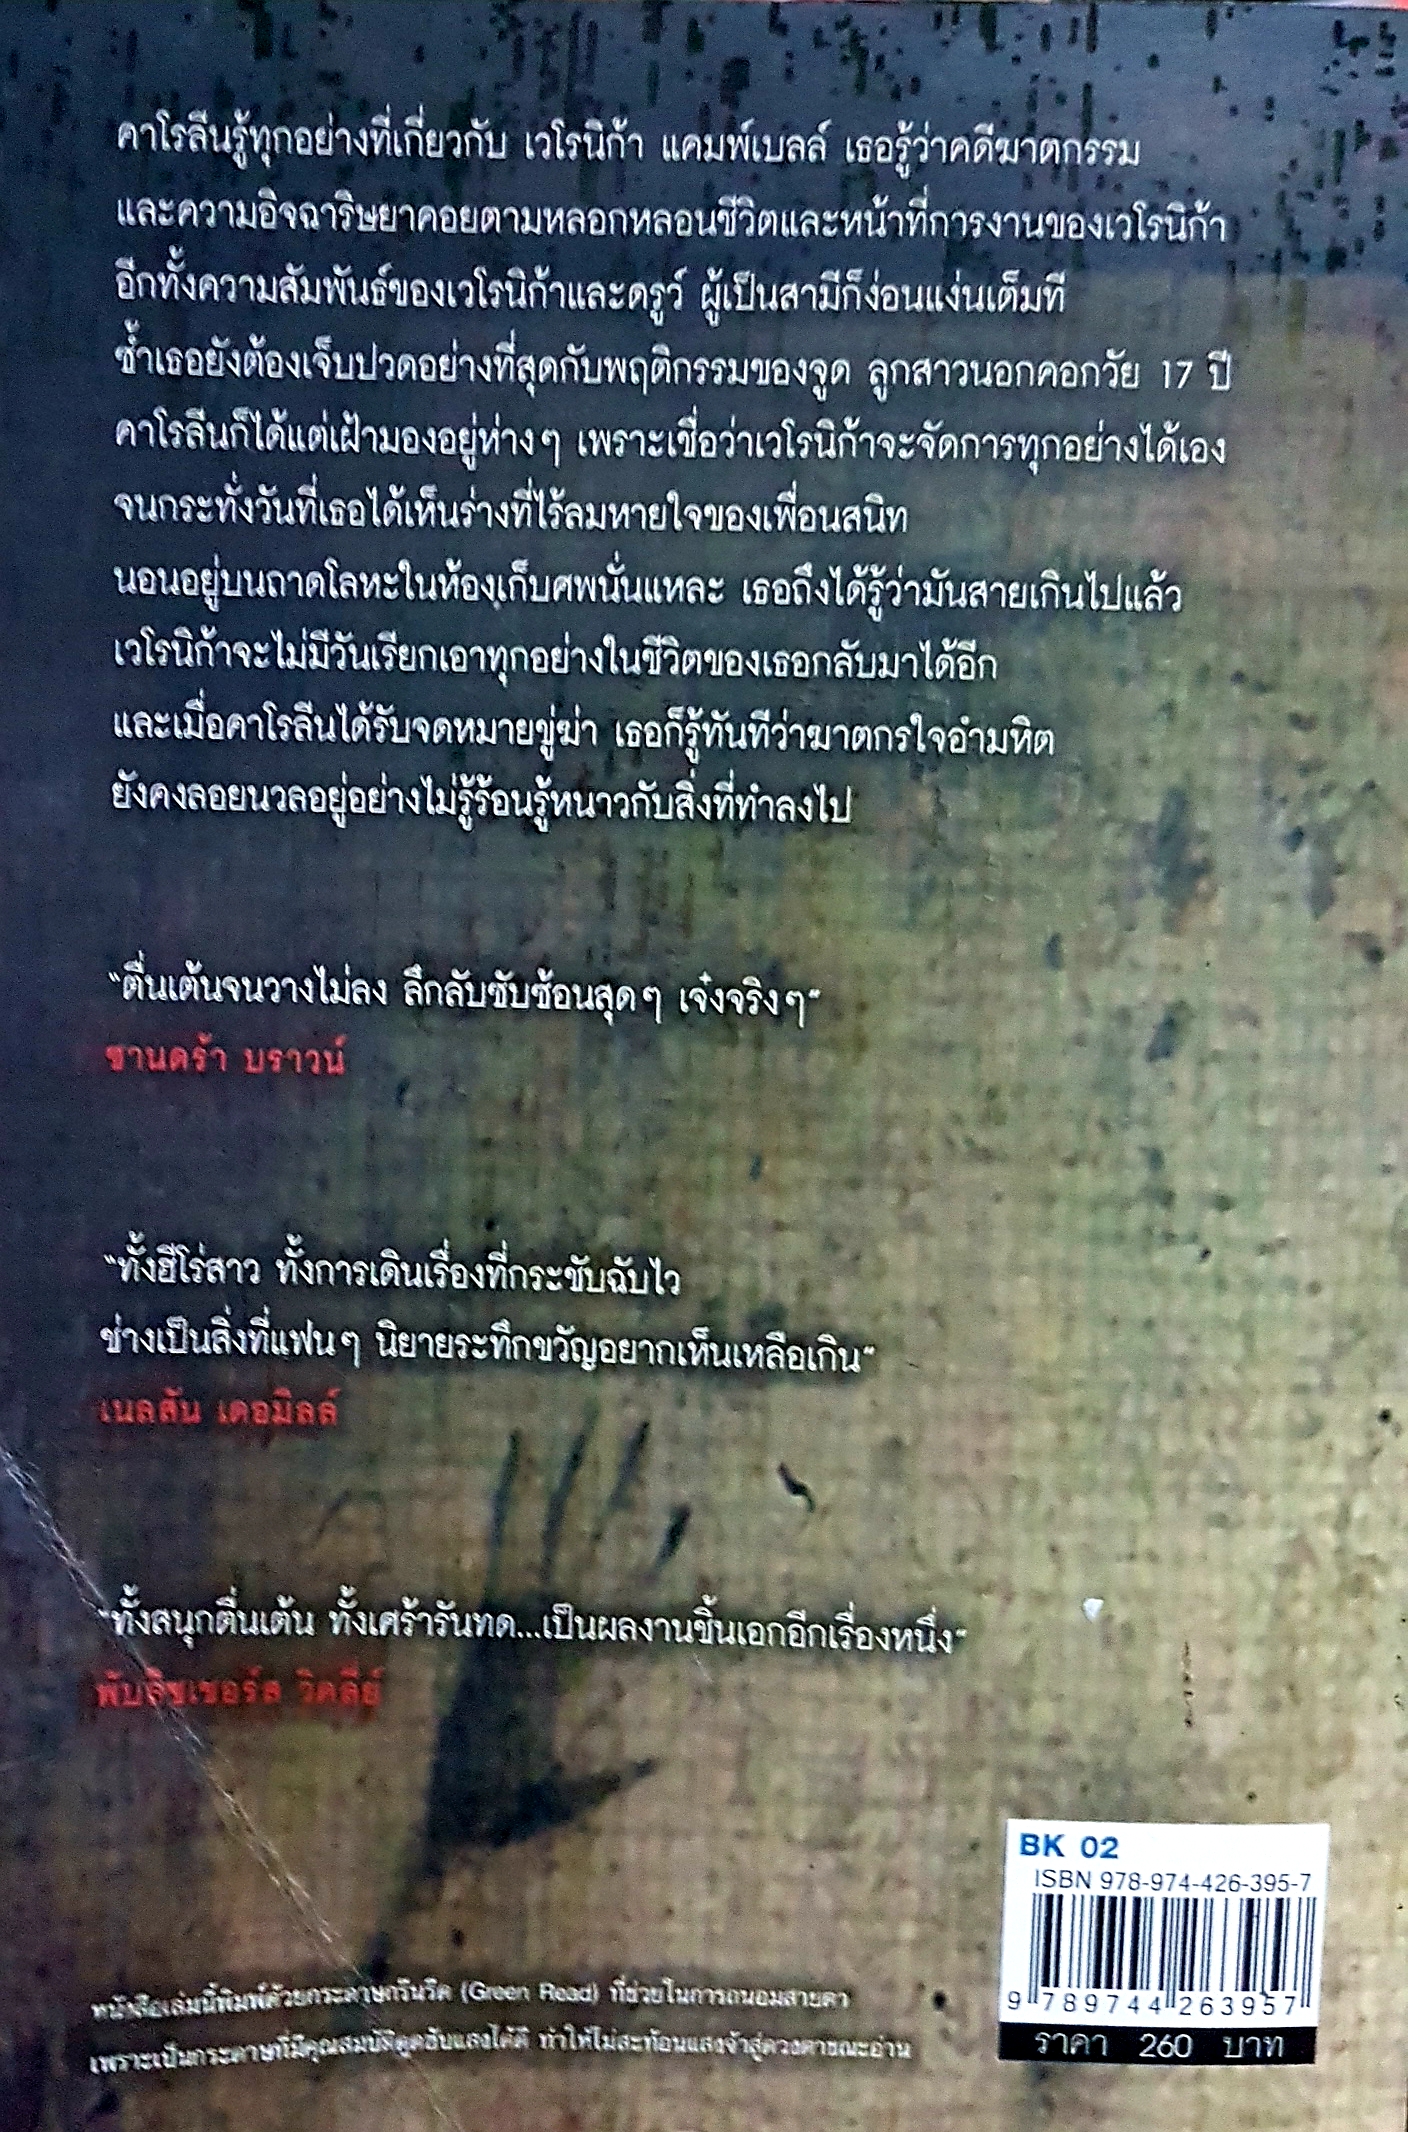 คาโรลีนรู้ทุกอย่างที่เกี่ยวกับ เวโรนิก้า แคมพ์เบลล์ เธอรู้ว่าคดีฆาตกรรม
และความอิจฉาริษยาคอยตามหลอกหลอนชีวิตและหน้าที่การงานของเวโรนิก้า
อีกทั้งความสัมพันธ์ของเวโรนิก้าและดรูว์ ผู้เป็นสามีก็ง่อนแง่นเต็มที
ซ้ำเธอยังต้องเจ็บปวดอย่างที่สุดกับพฤติกรรมของจูด ลูกสาวนอกคอกวัย 17 ปี
คาโรลีนก็ได้แต่เฝ้ามองอยู่ห่างๆ เพราะเชื่อว่าเวโรนิก้าจะจัดการทุกอย่างได้เอง
จนกระทั่งวันที่เธอได้เห็นร่างที่ไร้ลมหายใจของเพื่อนสนิท
นอนอยู่บนถาดโลหะในห้องเก็บศพนั่นแหละ เธอถึงได้รู้ว่ามันสายเกินไปแล้ว
เวโรนิก้าจะไม่มีวันเรียกเอาทุกอย่างในชีวิตของเธอกลับมาได้อีก
และเมื่อคาโรลีนได้รับจดหมายขู่ฆ่า เธอก็รู้ทันทีว่าฆาตกรใจอำมหิต
ยังคงลอยนวลอยู่อย่างไม่รู้ร้อนรู้หนาวกับสิ่งที่ทำลงไป
"ตื่นเต้นจนวางไม่ลง ลึกลับซับซ้อนสุดๆ เจ๋งจริงๆ"
ซานดร้า บราวน์
"ทั้งฮีโร่สาว ทั้งการเดินเรื่องที่กระชับฉับไว
ช่างเป็นสิ่งที่แฟนๆ นิยายระทึกขวัญอยากเห็นเหลือเกิน"
เนลสัน เดอมิลล์
"ทั้งสนุกตื่นเต้น ทั้งเศร้ารันทด...เป็นผลงานชิ้นเอกอีกเรื่องหนึ่ง"
พับลิชเชอร์ส วีคลีย์
BK 02
ISBN 978-974-426-395-7
9 789744 263957
ราคา 260 บาท
หนังสือเล่มนี้พิมพ์ด้วยกระดาษกรีนรีด (Green Read) ที่ช่วยในการถนอมสายตา
เพราะเป็นกระดาษที่มีคุณสมบัติดูดซับแสงได้ดี ทำให้ไม่สะท้อนแสงจ้าสู่ดวงตาขณะอ่าน